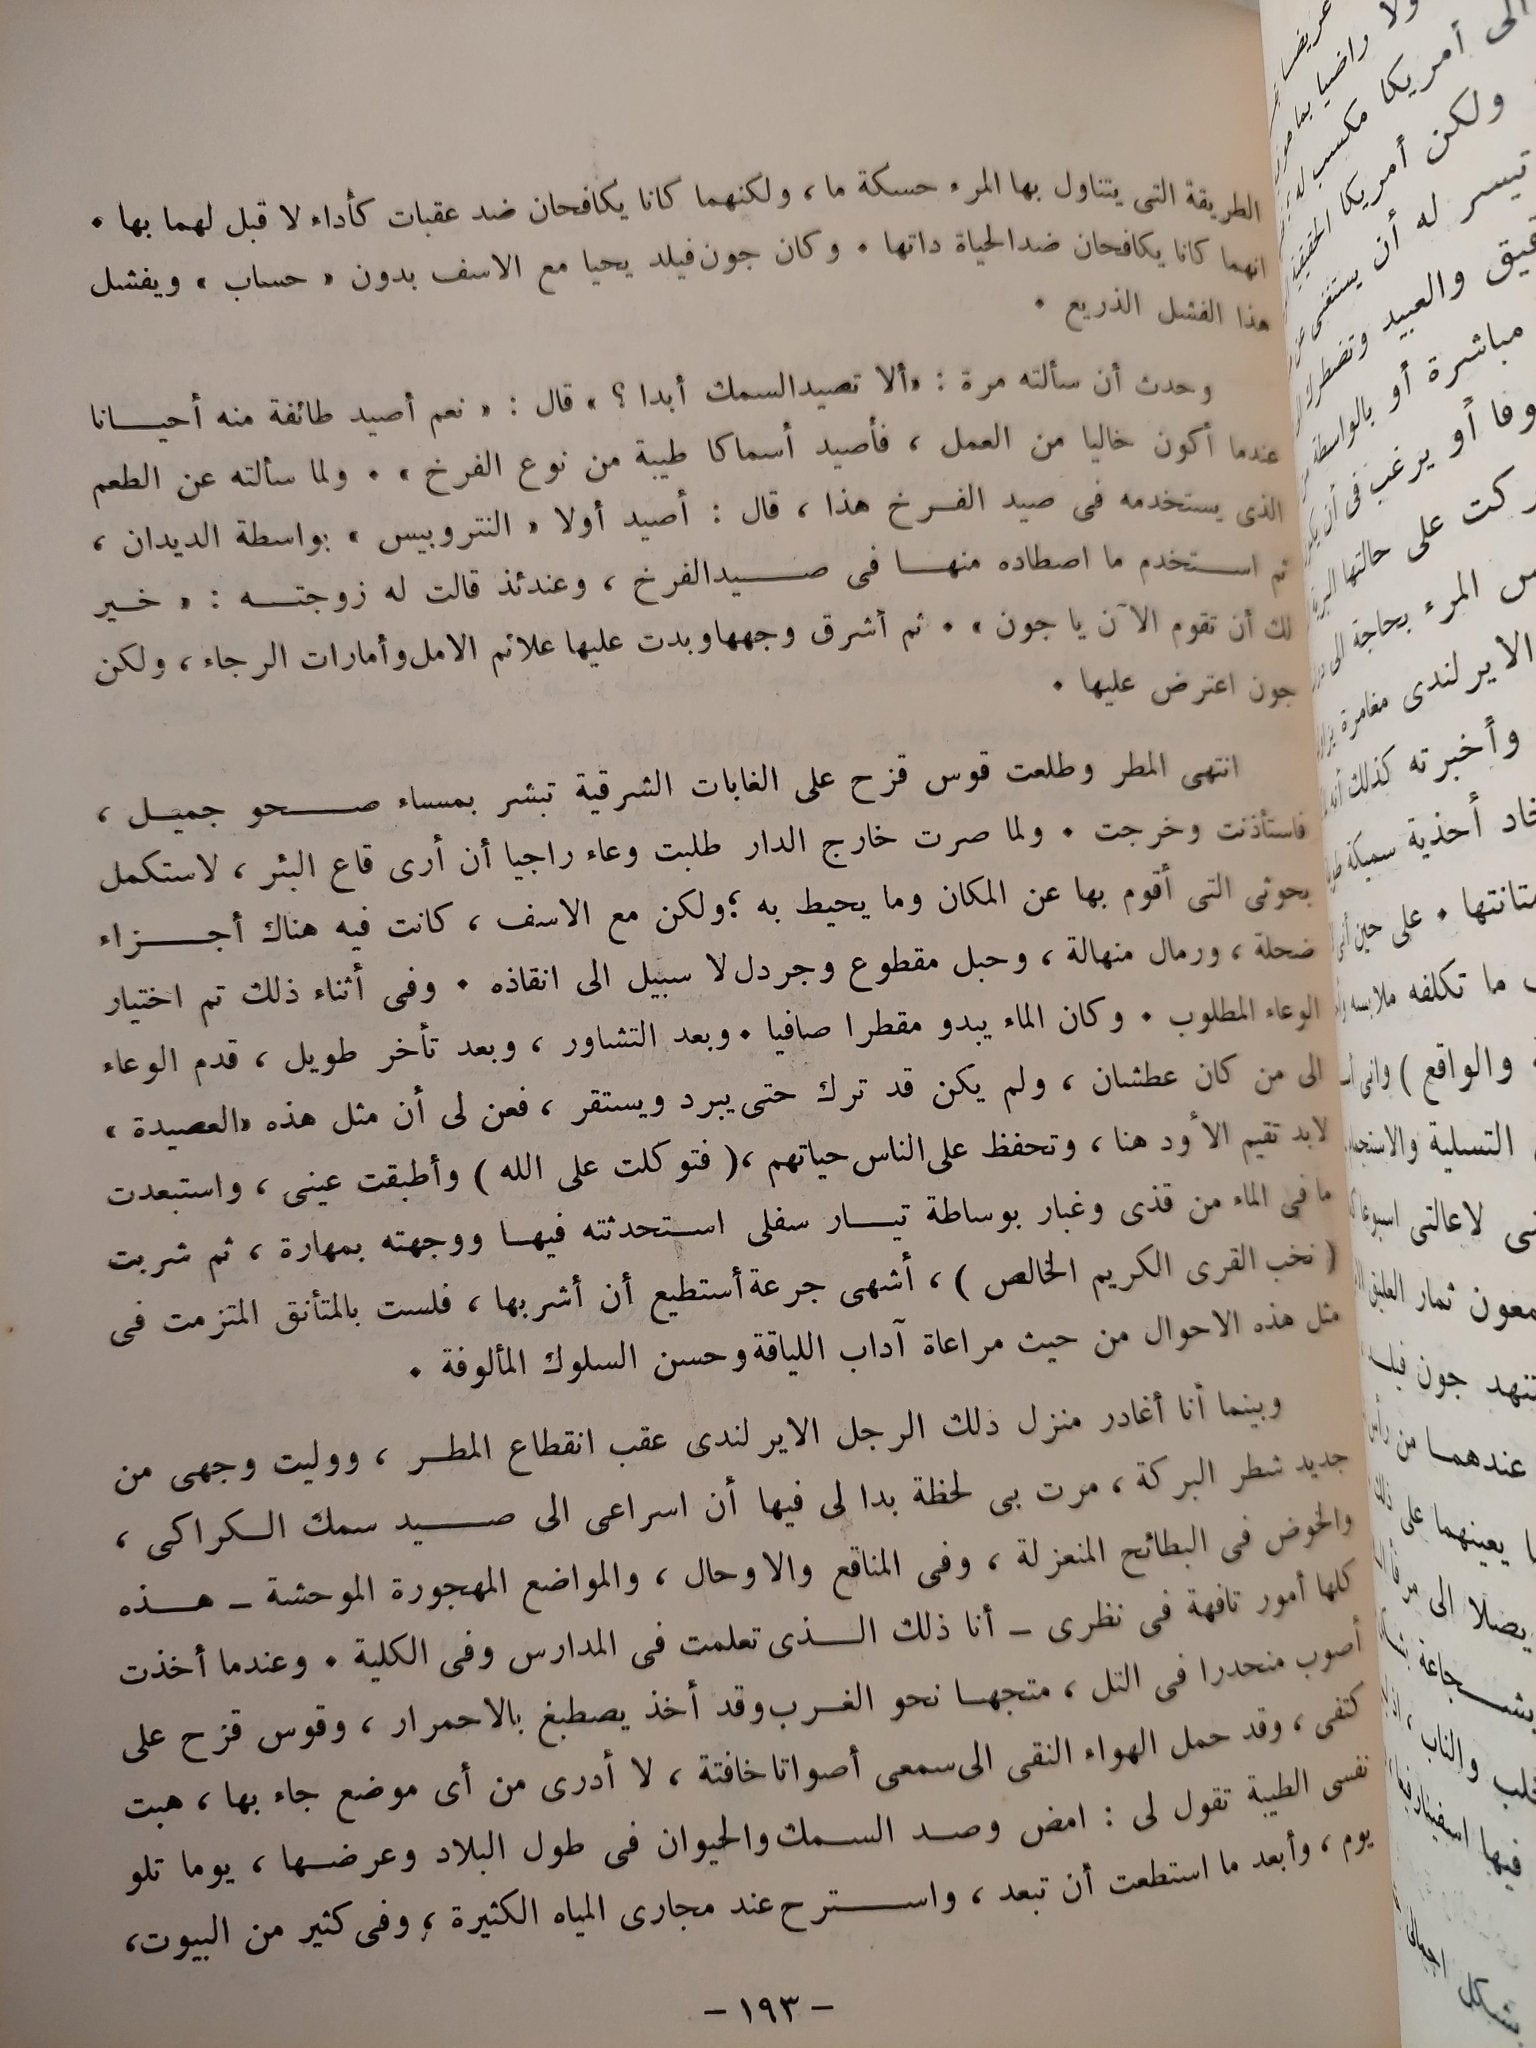 الطريقة التى يتناول بها المرء حسكة ما ، ولكنهما كانا يكافحان ضد عقبات كأداء لا قبل لهما بها .
انهما كانا يكافحان ضد الحياة ذاتها . وكان جون فيلد يحيا مع الاسف بدون « حساب » ويفشل
هذا الفشل الذريع .
وحدث أن سألته مرة : «ألا تصيد السمك أبدا ؟ » قال : « نعم أصيد طائفة منه أحيــانا
عندما أكون خاليا من العمل ، فأصيد أسماكا طيبة من نوع الفرخ » . ولما سألته عن الطعم
الذى يستخدمه فى صيد الفــرخ هذا ، قال : أصيد أولا « النتروبيس » بواسطة الديدان ،
ثم اســتخدم ما اصطاده منهــا فى صــيد الفرخ ، وعندئذ قالت له زوجتــه : « خــير
لك أن تقوم الآن يا جون » . ثم أشرق وجهها وبدت عليها علائم الامل وأمارات الرجاء ، ولكن
جون اعترض عليها .
انتهى المطر وطلعت قوس قزح على الغابات الشرقية تبشر بمساء صــحو جميــل ،
فاستأذنت وخرجت . ولما صرت خارج الدار طلبت وعاء راجيا أن أرى قاع البئر ، لاستكمل
بحوثى التى أقوم بها عن المكان وما يحيط به ؛ ولكن مع الاسف ، كانت فيه هناك أجــزاء
ضحلة ، ورمال منهالة ، وحبل مقطوع وجردل لا سبيل الى انقاذه . وفى أثناء ذلك تم اختيار
الوعاء المطلوب . وكان الماء يبدو مقطرا صافيا . وبعد التشاور ، وبعد تأخر طويل ، قدم الوعاء
الى من كان عطشان ، ولم يكن قد ترك حتى يبرد ويستقر ، فعن لى أن مثل هذه «العصيدة »
لابد تقيم الأود هنا ، وتحفظ على الناس حياتهم ، ( فتوكلت على الله ) وأطبقت عينى ، واستبعدت
ما فى الماء من قذى وغبار بوساطة تيــار سفلى اســتحدثته فيهــا ووجهته بمهارة ، ثم شربت
( نخب القرى الكريم الخالص ) ، أشهى جرعة أستطيع أن أشربها ، فلست بالمتأنق المتزمت فى
مثل هذه الاحوال من حيث مراعاة آداب اللياقة وحسن السلوك المألوفة .
وبينما أنا أغادر منزل ذلك الرجل الايرلندى عقب انقطاع المطــر ، ووليت وجهى من
جديد شطر البركة ، مرت بى لحظة بدا لى فيها أن اسراعى الى صــيد سمك الــكراكى ،
والخوض فى البطائح المنعزلة ، وفى المناقع والاوحال ، والمواضع المهجورة الموحشة ــ هــذه
كلها أمور تافهة فى نظرى ــ أنا ذلك الــذى تعلمت فى المدارس وفى الكلية . وعندما أخذت
أصوب منحدرا فى التل ، متجهــا نحو الغــرب وقد أخذ يصطبغ بالاحمرار ، وقوس قزح على
كتفى ، وقد حمل الهواء النقى الى سمعى أصواتا خافتة ، لا أدرى من أى موضع جاء بها ، هبت
نفسى الطيبة تقول لى : امض وصــد الســمك والحيوان فى طول البلاد وعرضــها ، يوما تلو
يوم ، وأبعد ما استطعت أن تبعد ، واســترح عند مجارى المياه الكثيرة ، وفى كثير من البيوت،
ــ ١٩٣ ــ
الى أمريكا مكسب له
ولكن أمريكا الحقيقية
تيسر له أن يستغنى عن
والعبيد
مباشرة أو بالواسطة
أو يرغب فى أن
على حالتها
المرء بحاجة الى
الايرلندى مغامرة
وأخبرته كذلك أنه
أحذية سميكة
على حين أنى
ما تكلفه ملابسه
والواقع ) وانى
التسلية
لاعالتى اسبوعا
ثمار العليق
جون فيلد
عندهمــا من رأس
يعينهما على ذلك
يصلا الى
والناب ،
فيها